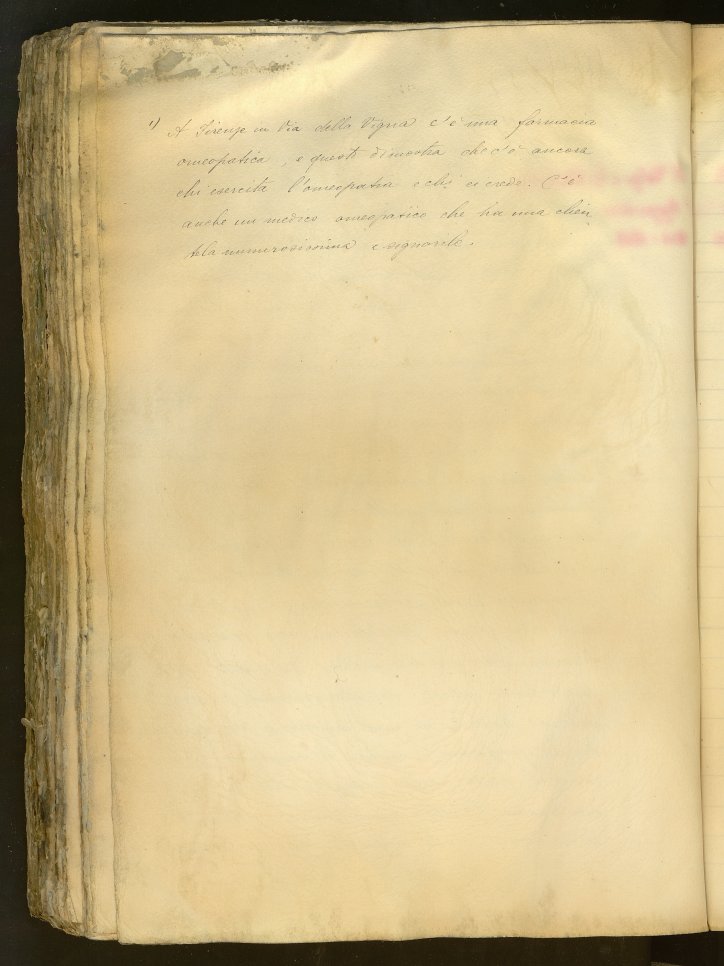 1) A Firenze in Via della Vigna c'è una farmacia
omeopatica, e questo dimostra che c'è ancora
chi esercita l'omeopatia e chi ci crede. C'è
anche un medico omeopatico che ha una clien
tela numerosissima e signorile.